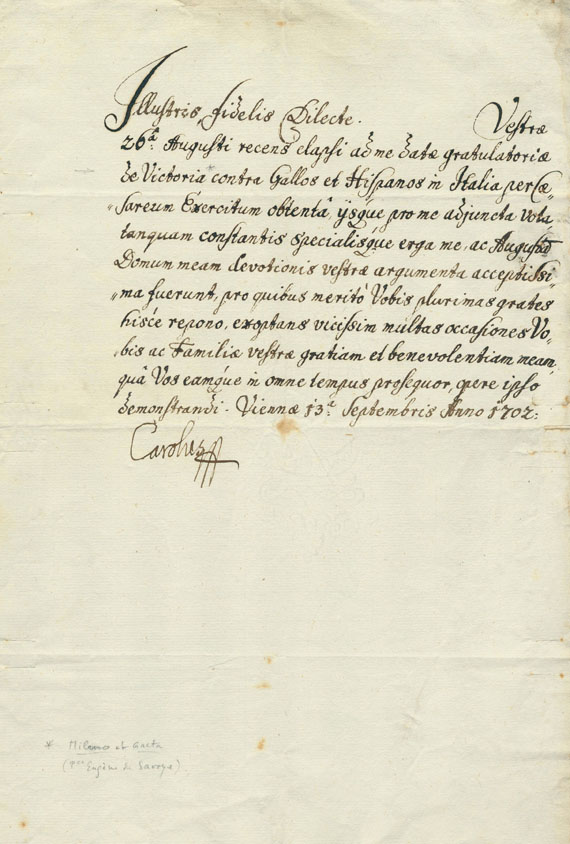 Illustris, fidelis Dilecte. Vestræ
26ª: Augusti recens elapsi ad me datæ gratulatoriæ
de Victoria contra Gallos et Hispanos in Italia per Cæ„
„sareum Exercitum obtentâ, ijsque pro me adjuncta vota
tanquam constantis specialisque erga me, ac Augustã
Domum meam devotionis vestræ argumenta acceptissi„
„ma fuerunt, pro quibus meritò Vobis plurimas grates
hisce repono, exoptans vicissim multas occasiones Vo„
„bis ac Familiæ vestræ gratiam et benevolentiam meam,
quâ Vos eamque in omne tempus prosequor, opere ipso
demonstrandi. Viennæ 13ª Septembris Anno 1702:
Carolus
* Milano et Gaeta
(Pce Eugène de Savoye)